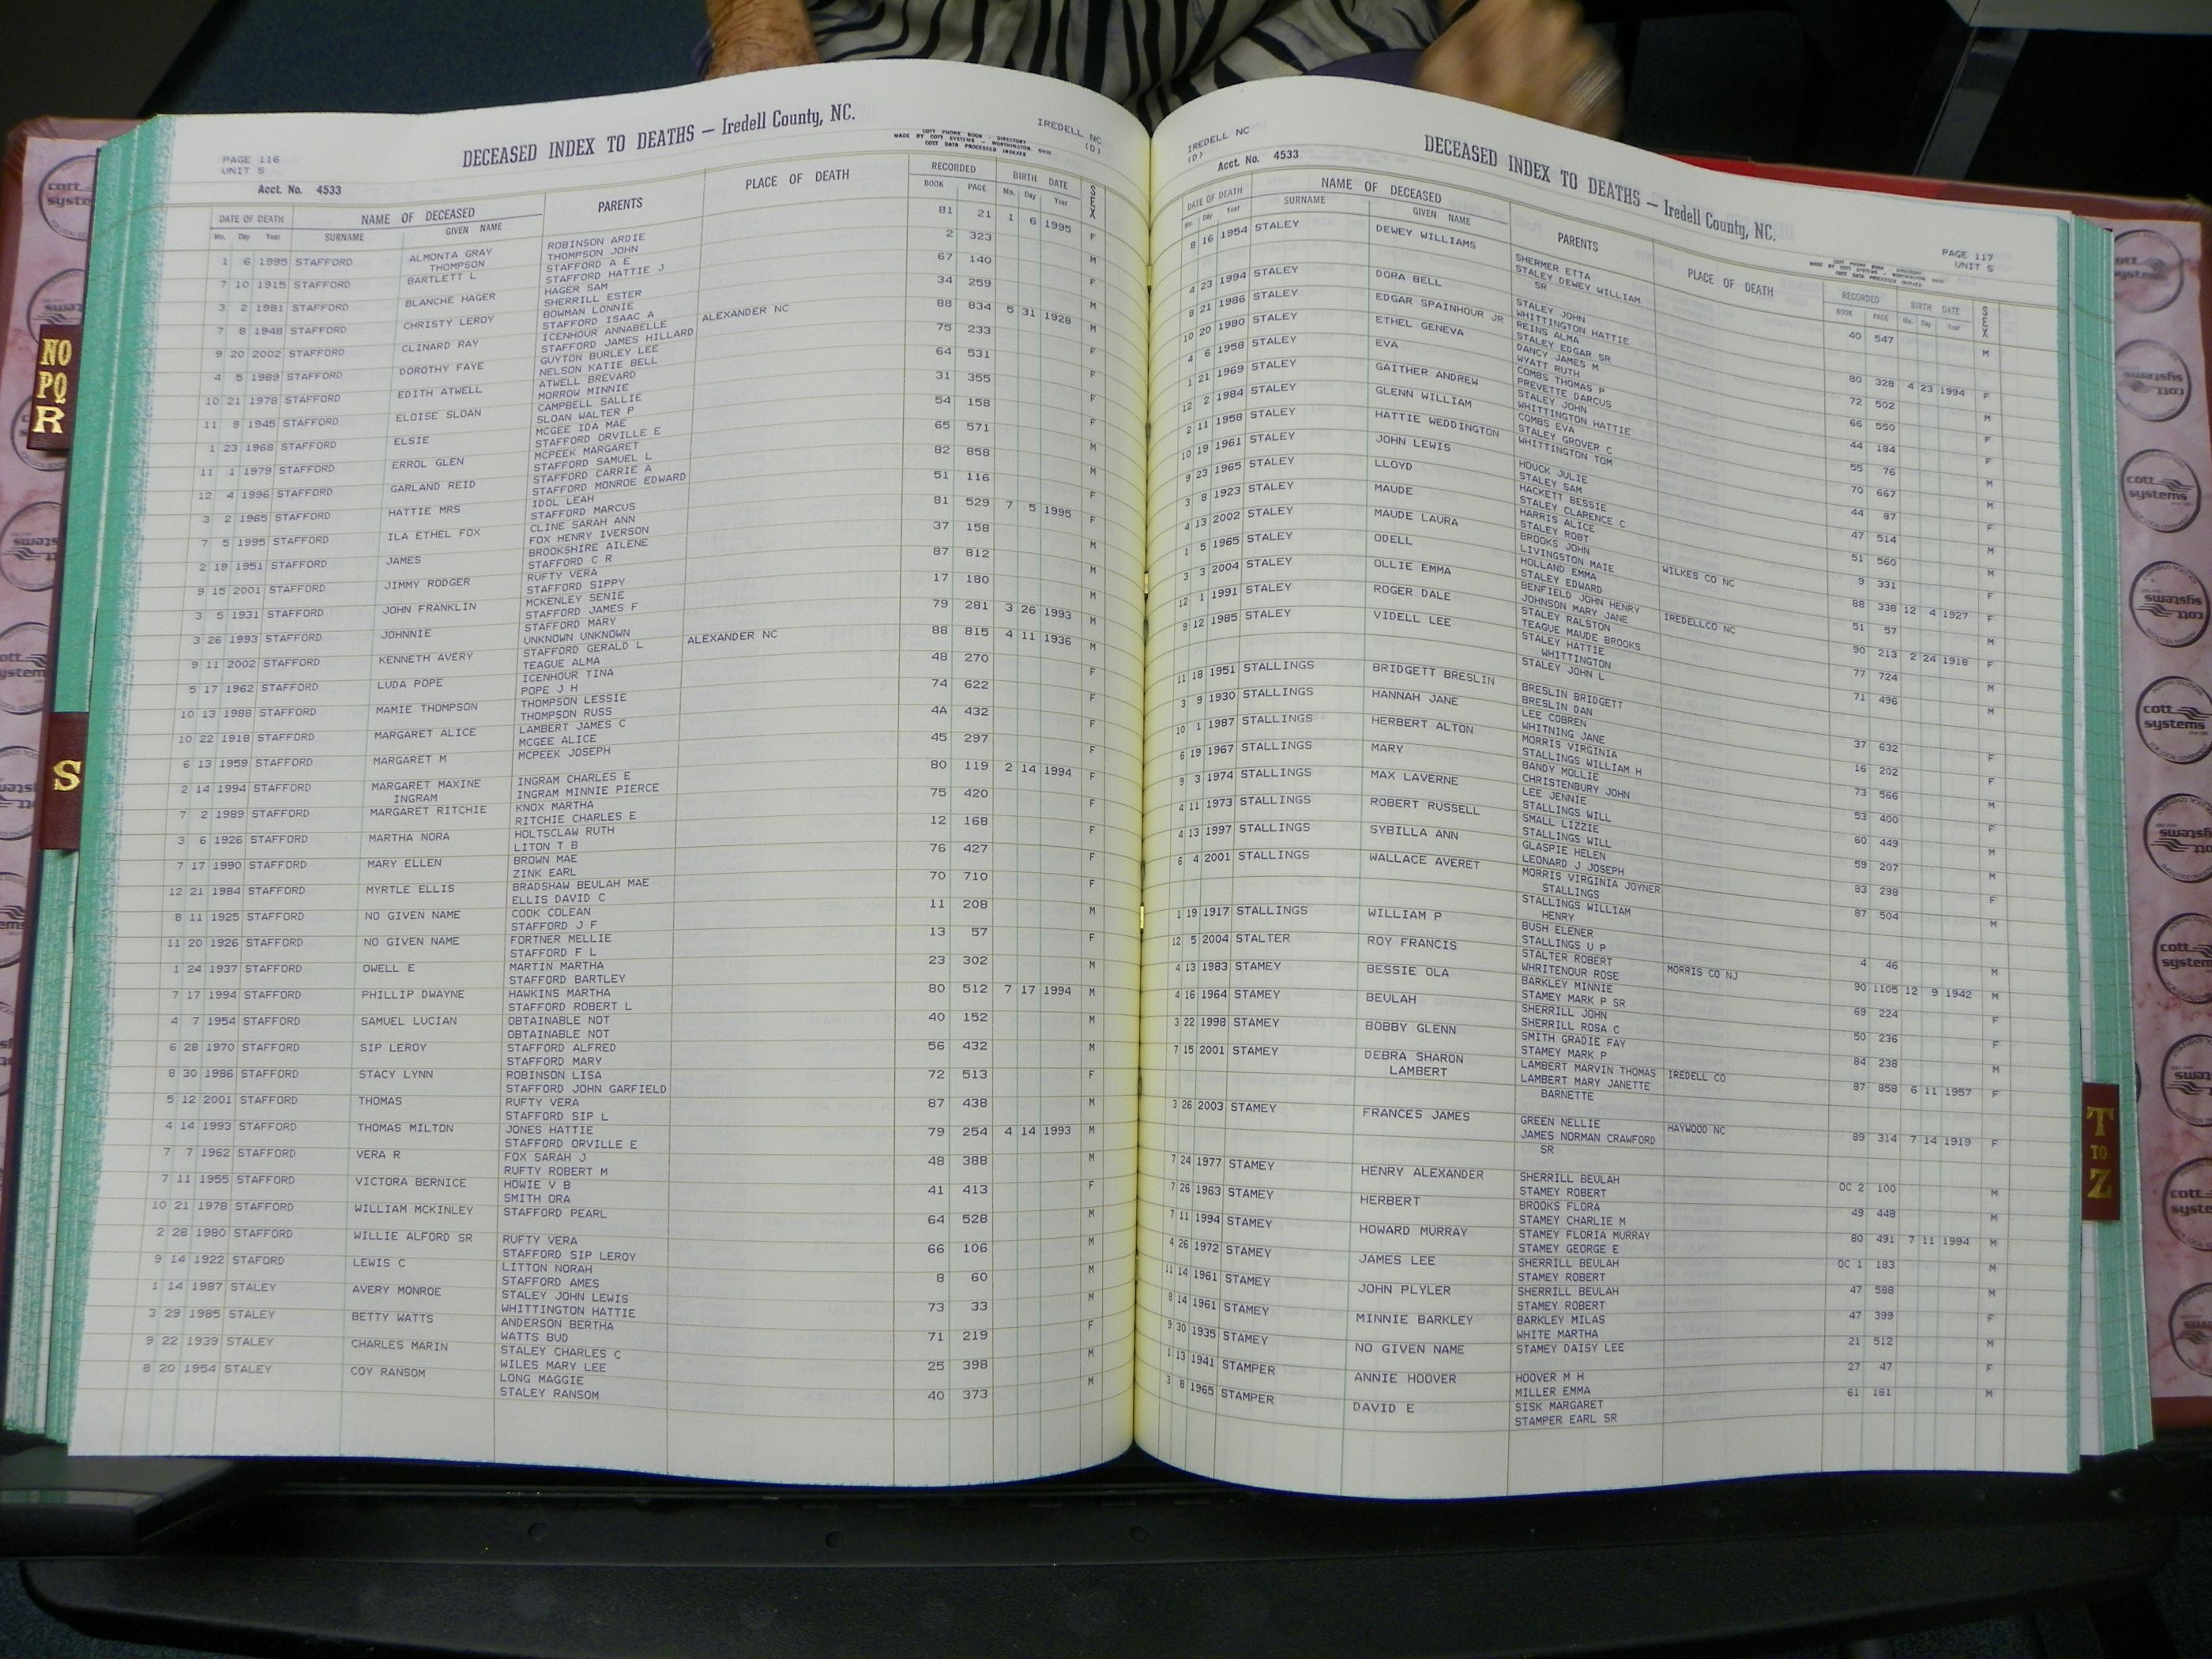 PAGE 116
UNIT S
DECEASED INDEX TO DEATHS — Iredell County, NC.
COTT PHONE BOOK - DIRECTORY
MADE BY COTT SYSTEMS - WORTHINGTON, OHIO
COTT DATA PROCESSED INDEXES
IREDELL NC
(D)
Acct. No. 4533
DATE OF DEATH NAME OF DECEASED PARENTS PLACE OF DEATH RECORDED BIRTH DATE SEX
Mo. Day Year SURNAME GIVEN NAME BOOK PAGE Mo. Day Year
1 6 1995 STAFFORD ALMONTA GRAY ROBINSON ARDIE 81 21 1 6 1995 F
THOMPSON THOMPSON JOHN
7 10 1915 STAFFORD BARTLETT L STAFFORD A E 2 323 M
STAFFORD HATTIE J
3 2 1981 STAFFORD BLANCHE HAGER HAGER SAM 67 140 F
SHERRILL ESTER
7 8 1948 STAFFORD CHRISTY LEROY BOWMAN LONNIE 34 259 M
STAFFORD ISAAC A
9 20 2002 STAFFORD CLINARD RAY ICENHOUR ANNABELLE ALEXANDER NC 88 834 5 31 1928 M
STAFFORD JAMES HILLARD
4 5 1989 STAFFORD DOROTHY FAYE GUYTON BURLEY LEE 75 233 F
NELSON KATIE BELL
10 21 1978 STAFFORD EDITH ATWELL ATWELL BREVARD 64 531 F
MORROW MINNIE
11 9 1945 STAFFORD ELOISE SLOAN CAMPBELL SALLIE 31 355 F
SLOAN WALTER P
1 23 1968 STAFFORD ELSIE MCGEE IDA MAE 54 158 F
STAFFORD ORVILLE E
11 1 1979 STAFFORD ERROL GLEN MCPEEK MARGARET 65 571 M
STAFFORD SAMUEL L
12 4 1996 STAFFORD GARLAND REID STAFFORD CARRIE A 82 858 M
STAFFORD MONROE EDWARD
3 2 1965 STAFFORD HATTIE MRS IDOL LEAH 51 116 F
STAFFORD MARCUS
7 5 1995 STAFFORD ILA ETHEL FOX CLINE SARAH ANN 81 529 7 5 1995 F
FOX HENRY IVERSON
2 19 1951 STAFFORD JAMES BROOKSHIRE AILENE 37 158 M
STAFFORD C R
9 15 2001 STAFFORD JIMMY RODGER RUFTY VERA 87 812 M
STAFFORD SIPPY
3 5 1931 STAFFORD JOHN FRANKLIN MCKENLEY SENIE 17 180 M
STAFFORD JAMES F
3 26 1993 STAFFORD JOHNNIE STAFFORD MARY 79 281 3 26 1993 M
UNKNOWN UNKNOWN
9 11 2002 STAFFORD KENNETH AVERY STAFFORD GERALD L ALEXANDER NC 88 815 4 11 1936 M
TEAGUE ALMA
5 17 1962 STAFFORD LUDA POPE ICENHOUR TINA 48 270 F
POPE J H
10 13 1988 STAFFORD MAMIE THOMPSON THOMPSON LESSIE 74 622 F
THOMPSON RUSS
10 22 1918 STAFFORD MARGARET ALICE LAMBERT JAMES C 4A 432 F
MCGEE ALICE
6 13 1959 STAFFORD MARGARET M MCPEEK JOSEPH 45 297 F
2 14 1994 STAFFORD MARGARET MAXINE INGRAM CHARLES E 80 119 2 14 1994 F
INGRAM INGRAM MINNIE PIERCE
7 2 1989 STAFFORD MARGARET RITCHIE KNOX MARTHA 75 420 F
RITCHIE CHARLES E
3 6 1926 STAFFORD MARTHA NORA HOLTSCLAW RUTH 12 168 F
LITON T B
7 17 1990 STAFFORD MARY ELLEN BROWN MAE 76 427 F
ZINK EARL
12 21 1984 STAFFORD MYRTLE ELLIS BRADSHAW BEULAH MAE 70 710 F
ELLIS DAVID C
8 11 1925 STAFFORD NO GIVEN NAME COOK COLEAN 11 208 M
STAFFORD J F
11 20 1926 STAFFORD NO GIVEN NAME FORTNER MELLIE 13 57 F
STAFFORD F L
1 24 1937 STAFFORD OWELL E MARTIN MARTHA 23 302 M
STAFFORD BARTLEY
7 17 1994 STAFFORD PHILLIP DWAYNE HAWKINS MARTHA 80 512 7 17 1994 M
STAFFORD ROBERT L
4 7 1954 STAFFORD SAMUEL LUCIAN OBTAINABLE NOT 40 152 M
OBTAINABLE NOT
6 28 1970 STAFFORD SIP LEROY STAFFORD ALFRED 56 432 M
STAFFORD MARY
8 30 1986 STAFFORD STACY LYNN ROBINSON LISA 72 513 F
STAFFORD JOHN GARFIELD
5 12 2001 STAFFORD THOMAS RUFTY VERA 87 438 M
STAFFORD SIP L
4 14 1993 STAFFORD THOMAS MILTON JONES HATTIE 79 254 4 14 1993 M
STAFFORD ORVILLE E
7 7 1962 STAFFORD VERA R FOX SARAH J 48 388 M
RUFTY ROBERT M
7 11 1955 STAFFORD VICTORA BERNICE HOWIE V B 41 413 F
SMITH ORA
10 21 1978 STAFFORD WILLIAM MCKINLEY STAFFORD PEARL 64 528 M
2 28 1980 STAFFORD WILLIE ALFORD SR RUFTY VERA 66 106 M
STAFFORD SIP LEROY
9 14 1922 STAFORD LEWIS C LITTON NORAH 8 60 M
STAFFORD AMES
1 14 1987 STALEY AVERY MONROE STALEY JOHN LEWIS 73 33 M
WHITTINGTON HATTIE
3 29 1985 STALEY BETTY WATTS ANDERSON BERTHA 71 219 F
WATTS BUD
9 22 1939 STALEY CHARLES MARIN STALEY CHARLES C 25 398 M
WILES MARY LEE
8 20 1954 STALEY COY RANSOM LONG MAGGIE 40 373 M
STALEY RANSOM
IREDELL NC
(D)
DECEASED INDEX TO DEATHS — Iredell County, NC.
COTT PHONE BOOK - DIRECTORY
MADE BY COTT SYSTEMS - WORTHINGTON, OHIO
COTT DATA PROCESSED INDEXES
PAGE 117
UNIT S
Acct. No. 4533
DATE OF DEATH NAME OF DECEASED PARENTS PLACE OF DEATH RECORDED BIRTH DATE SEX
Mo. Day Year SURNAME GIVEN NAME BOOK PAGE Mo. Day Year
8 16 1954 STALEY DEWEY WILLIAMS SHERMER ETTA 40 547 M
STALEY DEWEY WILLIAM
SR
4 23 1994 STALEY DORA BELL STALEY JOHN 80 328 4 23 1994 F
WHITTINGTON HATTIE
8 21 1986 STALEY EDGAR SPAINHOUR JR REINS ALMA 72 502 M
STALEY EDGAR SR
10 20 1980 STALEY ETHEL GENEVA DANCY JAMES M 66 550 F
WYATT RUTH
4 6 1958 STALEY EVA COMBS THOMAS P 44 184 F
PREVETTE DARCUS
1 21 1969 STALEY GAITHER ANDREW STALEY JOHN 55 76 M
WHITTINGTON HATTIE
12 2 1984 STALEY GLENN WILLIAM COMBS EVA 70 667 M
STALEY GROVER C
2 11 1958 STALEY HATTIE WEDDINGTON WHITTINGTON TOM 44 87 F
10 19 1961 STALEY JOHN LEWIS HOUCK JULIE 47 514 M
STALEY SAM
9 23 1965 STALEY LLOYD HACKETT BESSIE 51 560 M
STALEY CLARENCE C
3 8 1923 STALEY MAUDE HARRIS ALICE 9 331 F
STALEY ROBT
4 13 2002 STALEY MAUDE LAURA BROOKS JOHN WILKES CO NC 88 338 12 4 1927 F
LIVINGSTON MAIE
1 5 1965 STALEY ODELL HOLLAND EMMA 51 57 M
STALEY EDWARD
3 3 2004 STALEY OLLIE EMMA BENFIELD JOHN HENRY IREDELLCO NC 90 213 2 24 1918 F
JOHNSON MARY JANE
12 1 1991 STALEY ROGER DALE STALEY RALSTON 77 724 M
TEAGUE MAUDE BROOKS
9 12 1985 STALEY VIDELL LEE STALEY HATTIE 71 496 M
WHITTINGTON
STALEY JOHN L
11 18 1951 STALLINGS BRIDGETT BRESLIN BRESLIN BRIDGETT 37 632 F
BRESLIN DAN
3 9 1930 STALLINGS HANNAH JANE LEE COBREN 16 202 F
WHITNING JANE
10 1 1987 STALLINGS HERBERT ALTON MORRIS VIRGINIA 73 566 M
STALLINGS WILLIAM H
6 19 1967 STALLINGS MARY BANDY MOLLIE 53 400 F
CHRISTENBURY JOHN
9 3 1974 STALLINGS MAX LAVERNE LEE JENNIE 60 449 M
STALLINGS WILL
4 11 1973 STALLINGS ROBERT RUSSELL SMALL LIZZIE 59 207 M
STALLINGS WILL
4 13 1997 STALLINGS SYBILLA ANN GLASPIE HELEN 83 298 F
LEONARD J JOSEPH
6 4 2001 STALLINGS WALLACE AVERET MORRIS VIRGINIA JOYNER 87 504 M
STALLINGS
STALLINGS WILLIAM
HENRY
1 19 1917 STALLINGS WILLIAM P BUSH ELENER 4 46 M
STALLINGS U P
12 5 2004 STALTER ROY FRANCIS STALTER ROBERT MORRIS CO NJ 90 1105 12 9 1942 M
WHRITENOUR ROSE
4 13 1983 STAMEY BESSIE OLA BARKLEY MINNIE 69 224 F
STAMEY MARK P SR
4 16 1964 STAMEY BEULAH SHERRILL JOHN 50 236 F
SHERRILL ROSA C
3 22 1998 STAMEY BOBBY GLENN SMITH GRADIE FAY 84 238 M
STAMEY MARK P
7 15 2001 STAMEY DEBRA SHARON LAMBERT MARVIN THOMAS IREDELL CO 87 858 6 11 1957 F
LAMBERT LAMBERT MARY JANETTE
BARNETTE
3 26 2003 STAMEY FRANCES JAMES GREEN NELLIE HAYWOOD NC 89 314 7 14 1919 F
JAMES NORMAN CRAWFORD
SR
7 24 1977 STAMEY HENRY ALEXANDER SHERRILL BEULAH OC 2 100 M
STAMEY ROBERT
7 26 1963 STAMEY HERBERT BROOKS FLORA 49 448 M
STAMEY CHARLIE M
7 11 1994 STAMEY HOWARD MURRAY STAMEY FLORIA MURRAY 80 491 7 11 1994 M
STAMEY GEORGE E
4 26 1972 STAMEY JAMES LEE SHERRILL BEULAH OC 1 183 M
STAMEY ROBERT
11 14 1961 STAMEY JOHN PLYLER SHERRILL BEULAH 47 588 M
STAMEY ROBERT
8 14 1961 STAMEY MINNIE BARKLEY BARKLEY MILAS 47 399 F
WHITE MARTHA
9 30 1935 STAMEY NO GIVEN NAME STAMEY DAISY LEE 21 512 M
1 13 1941 STAMPER ANNIE HOOVER HOOVER M H 27 47 F
MILLER EMMA
3 8 1965 STAMPER DAVID E SISK MARGARET 61 161 M
STAMPER EARL SR
NO
PQ
R
S
T
TO
Z
cott systems